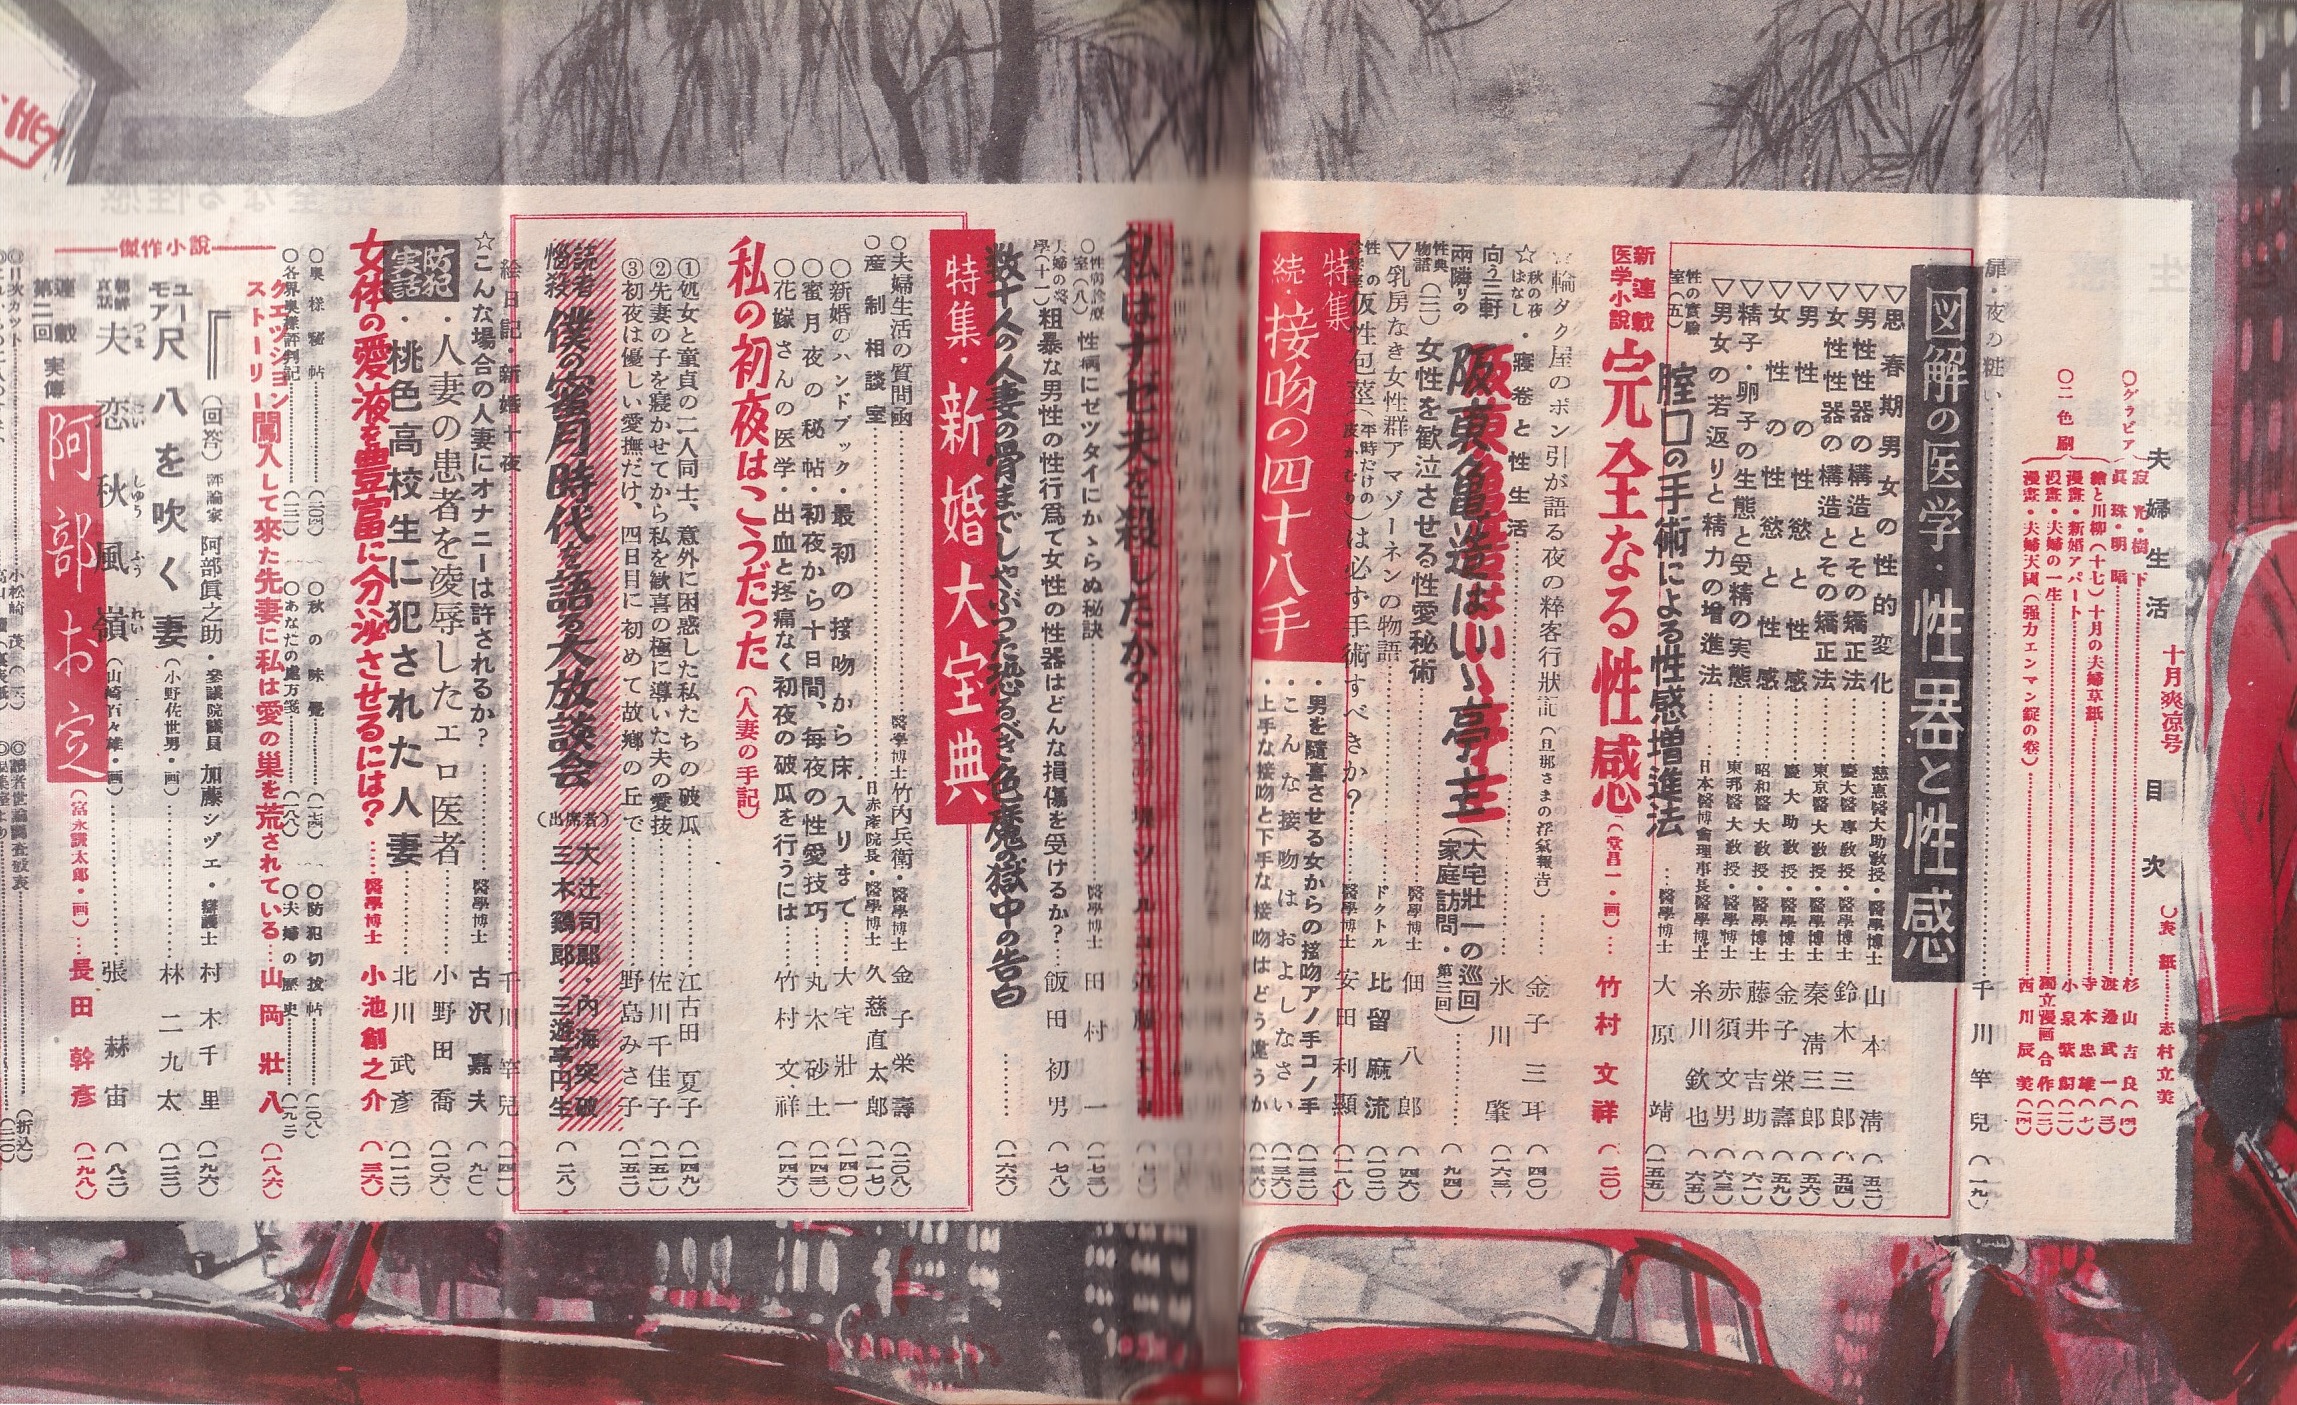 夫婦生活 十月爽凉号 目次
表紙 志村立美
○グラビア
寂光・樹下 杉山吉良
真珠・明暗 渡邊武
繪と川柳(十七)十月の夫婦草紙 寺本忠雄
漫畫・新婚アパート 小泉紫
○二色刷
漫畫・夫婦の一生 独立漫画 合作
漫畫・夫婦天國(强力エンマン錠の巻) 西川辰美
扉・夜の粧い 千川竿兒(一九)
図解の医学・性器と性感
▽思春期男女の性的変化 慈恵醫大助敎授・醫學博士 山本清(五二)
▽男性性器の構造とその矯正法 慶大醫専敎授・醫學博士 鈴木三郎(五四)
▽女性性器の構造とその矯正法 東京醫大敎授・醫學博士 秦清三郎(五六)
▽男性の性慾と性感 慶大助敎授・醫學博士 金子栄壽(五九)
▽女性の性慾と性感 昭和醫大敎授・醫學博士 藤井吉助(六一)
▽精子・卵子の生態と受精の実態 東邦醫大敎授・醫學博士 赤須文男(六三)
▽男女の若返りと精力の増進法 日本醫博會理事長醫學博士 糸川欽也(六五)
性の實驗室(五) 腟口の手術による性感増進法 醫學博士 大原靖(一五五)
新連載 医学小説 完全なる性感(堂昌一・画) 竹村文祥(二〇)
☆輪タク屋のポン引が語る夜の粋客行狀記(旦那さまの浮氣報告) 金子三耳(四〇)
☆秋の夜はなし・寝巻と性生活 氷川肇(一六三)
向う三軒両隣りの 阪東亀造はいゝ亭主(大宅壯一の巡回家庭訪問・第三回)(九四)
性典物語(三) 女性を歓泣させる性愛秘術 醫學博士 佃八郎(四六)
▽乳房なき女性群アマゾーネンの物語 ドクトル 比留麻流(一〇二)
性の診療室 仮性包莖(平時だけの皮かむり)は必ず手術すべきか? 醫學博士 安田利顯(一一八)
特集 続・接吻の四十八手
・男を隨喜させる女からの接吻アノ手コノ手(一三二)
・こんな接吻はおよしなさい(一三六)
・上手な接吻と下手な接吻はどう違うか
私はナゼ夫を殺したか?
○性病診療室(八) 性病にゼツタイにかゝらぬ秘訣 醫學博士 田村一(一七三)
夫婦の醫學(十一) 粗暴な男性の性行爲で女性の性器はどんな損傷を受けるか? 飯田初男(七八)
数十人の人妻の骨までしやぶつた恐るべき色魔の獄中の告白(一六六)
特集・新婚大宝典
○夫婦生活の質問函 醫學博士竹内兵衛・醫學博士 金子栄壽(二〇八)
○産制相談室 日赤産院長・醫學博士 久慈直太郎(一一七)
○新婚のハンドブック・最初の接吻から床入りまで 大宅壯一(一四〇)
○蜜月夜の秘帖・初夜から十日間、毎夜の性愛技巧 丸木砂土(一四三)
○花嫁さんの医学・出血と疼痛なく初夜の破瓜を行うには 竹村文祥(一四六)
私の初夜はこうだった(人妻の手記)
①処女と童貞の二人同士、意外に困惑した私たちの破瓜 江古田夏子(一四九)
②先妻の子を寢かせてから私を歓喜の極に導いた夫の愛技 佐川千佳子(一五一)
③初夜は優しい愛撫だけ、四日目に初めて故鄕の丘で 野島みさ子(一五二)
読者悩殺 僕の蜜月時代を語る大放談会(出席者) 大辻司郎・内海突破 三木鶏郎・三遊亭円生(二八)
絵日記・新婚十夜 千川竿兒(一四一)
☆こんな場合の人妻にオナニーは許されるか? 醫學博士 古沢嘉夫(九〇)
防犯実話
・人妻の患者を凌辱したエロ医者 小野田喬(一〇六)
・桃色高校生に犯された人妻 北川武彦(一一二)
女体の愛液を豊富に分泌させるには? 醫學博士 小池創之介(三六)
○奧樣秘帖
○秋の味覺
○防犯切抜帖(二〇八)
○各界奥様評判記
○あなたの處方箋(一八八)
○夫婦の歴史(一九二)
クエッションストーリー 闖入して來た先妻に私は愛の巣を荒されている 山岡壯八(一八六)
(回答) 評論家 阿部眞之助・參議院議員 加藤シヅエ・辯護士 村木千里(一九六)
傑作小說
ユーモア 尺八を吹く妻(小野佐世男・画) 林二九太(一二三)
朝鮮哀話 夫恋秋風嶺(山崎百々雄・画) 張赫宙(八二)
つま こい しゅう ふう れい
連載第二回 実傳 阿部お定(富永謙太郎・画) 長田幹彦(一九八)